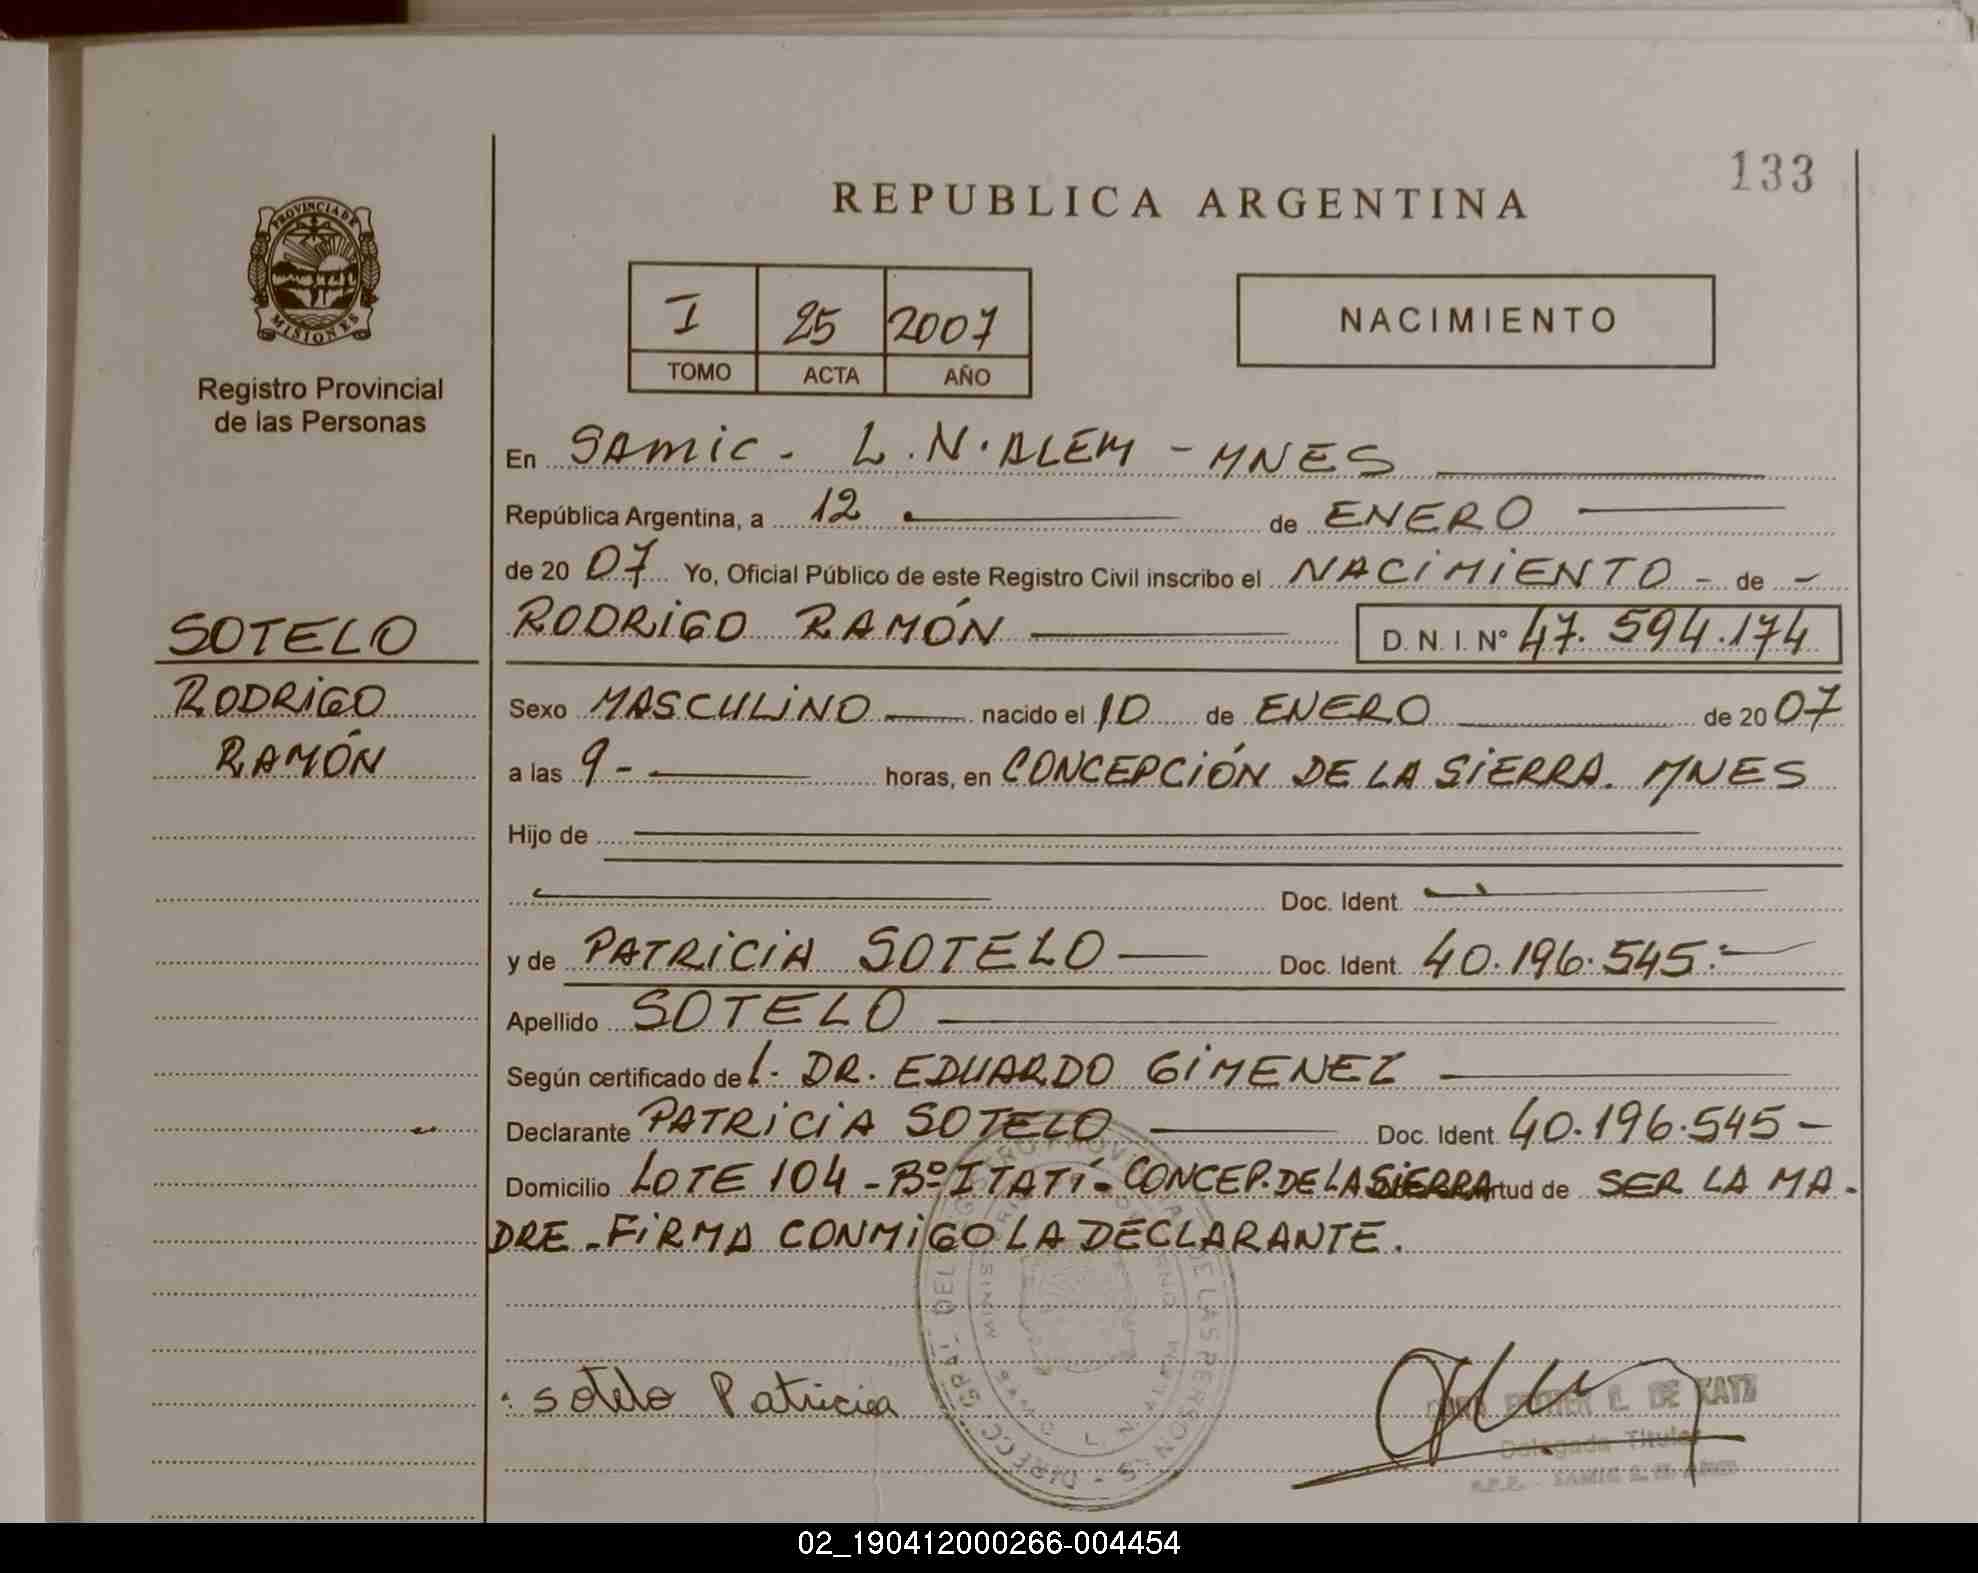 133
REPUBLICA ARGENTINA
PROVINCIA DE
MISIONES
Registro Provincial
de las Personas
I 25 2007
TOMO ACTA AÑO
NACIMIENTO
En SAMIC - L.N. ALEM - MNES
República Argentina, a 12 de ENERO
de 20 07 Yo, Oficial Público de este Registro Civil inscribo el NACIMIENTO - de -
SOTELO
RODRIGO
RAMÓN
RODRIGO RAMÓN D. N. I. Nº 47.594.174
Sexo MASCULINO nacido el 10 de ENERO de 20 07
a las 9 - horas, en CONCEPCIÓN DE LA SIERRA. MNES
Hijo de
Doc. Ident.
y de PATRICIA SOTELO Doc. Ident. 40.196.545.-
Apellido SOTELO
Según certificado del - DR. EDUARDO GIMENEZ
Declarante PATRICIA SOTELO Doc. Ident. 40.196.545 -
Domicilio LOTE 104 - Bº ITATÍ - CONCEP. DE LA SIERRA tud de SER LA MA-
DRE - FIRMA CONMIGO LA DECLARANTE.
Sotelo Patricia
E. DE KATZ
Delegada Titular
02_190412000266-004454